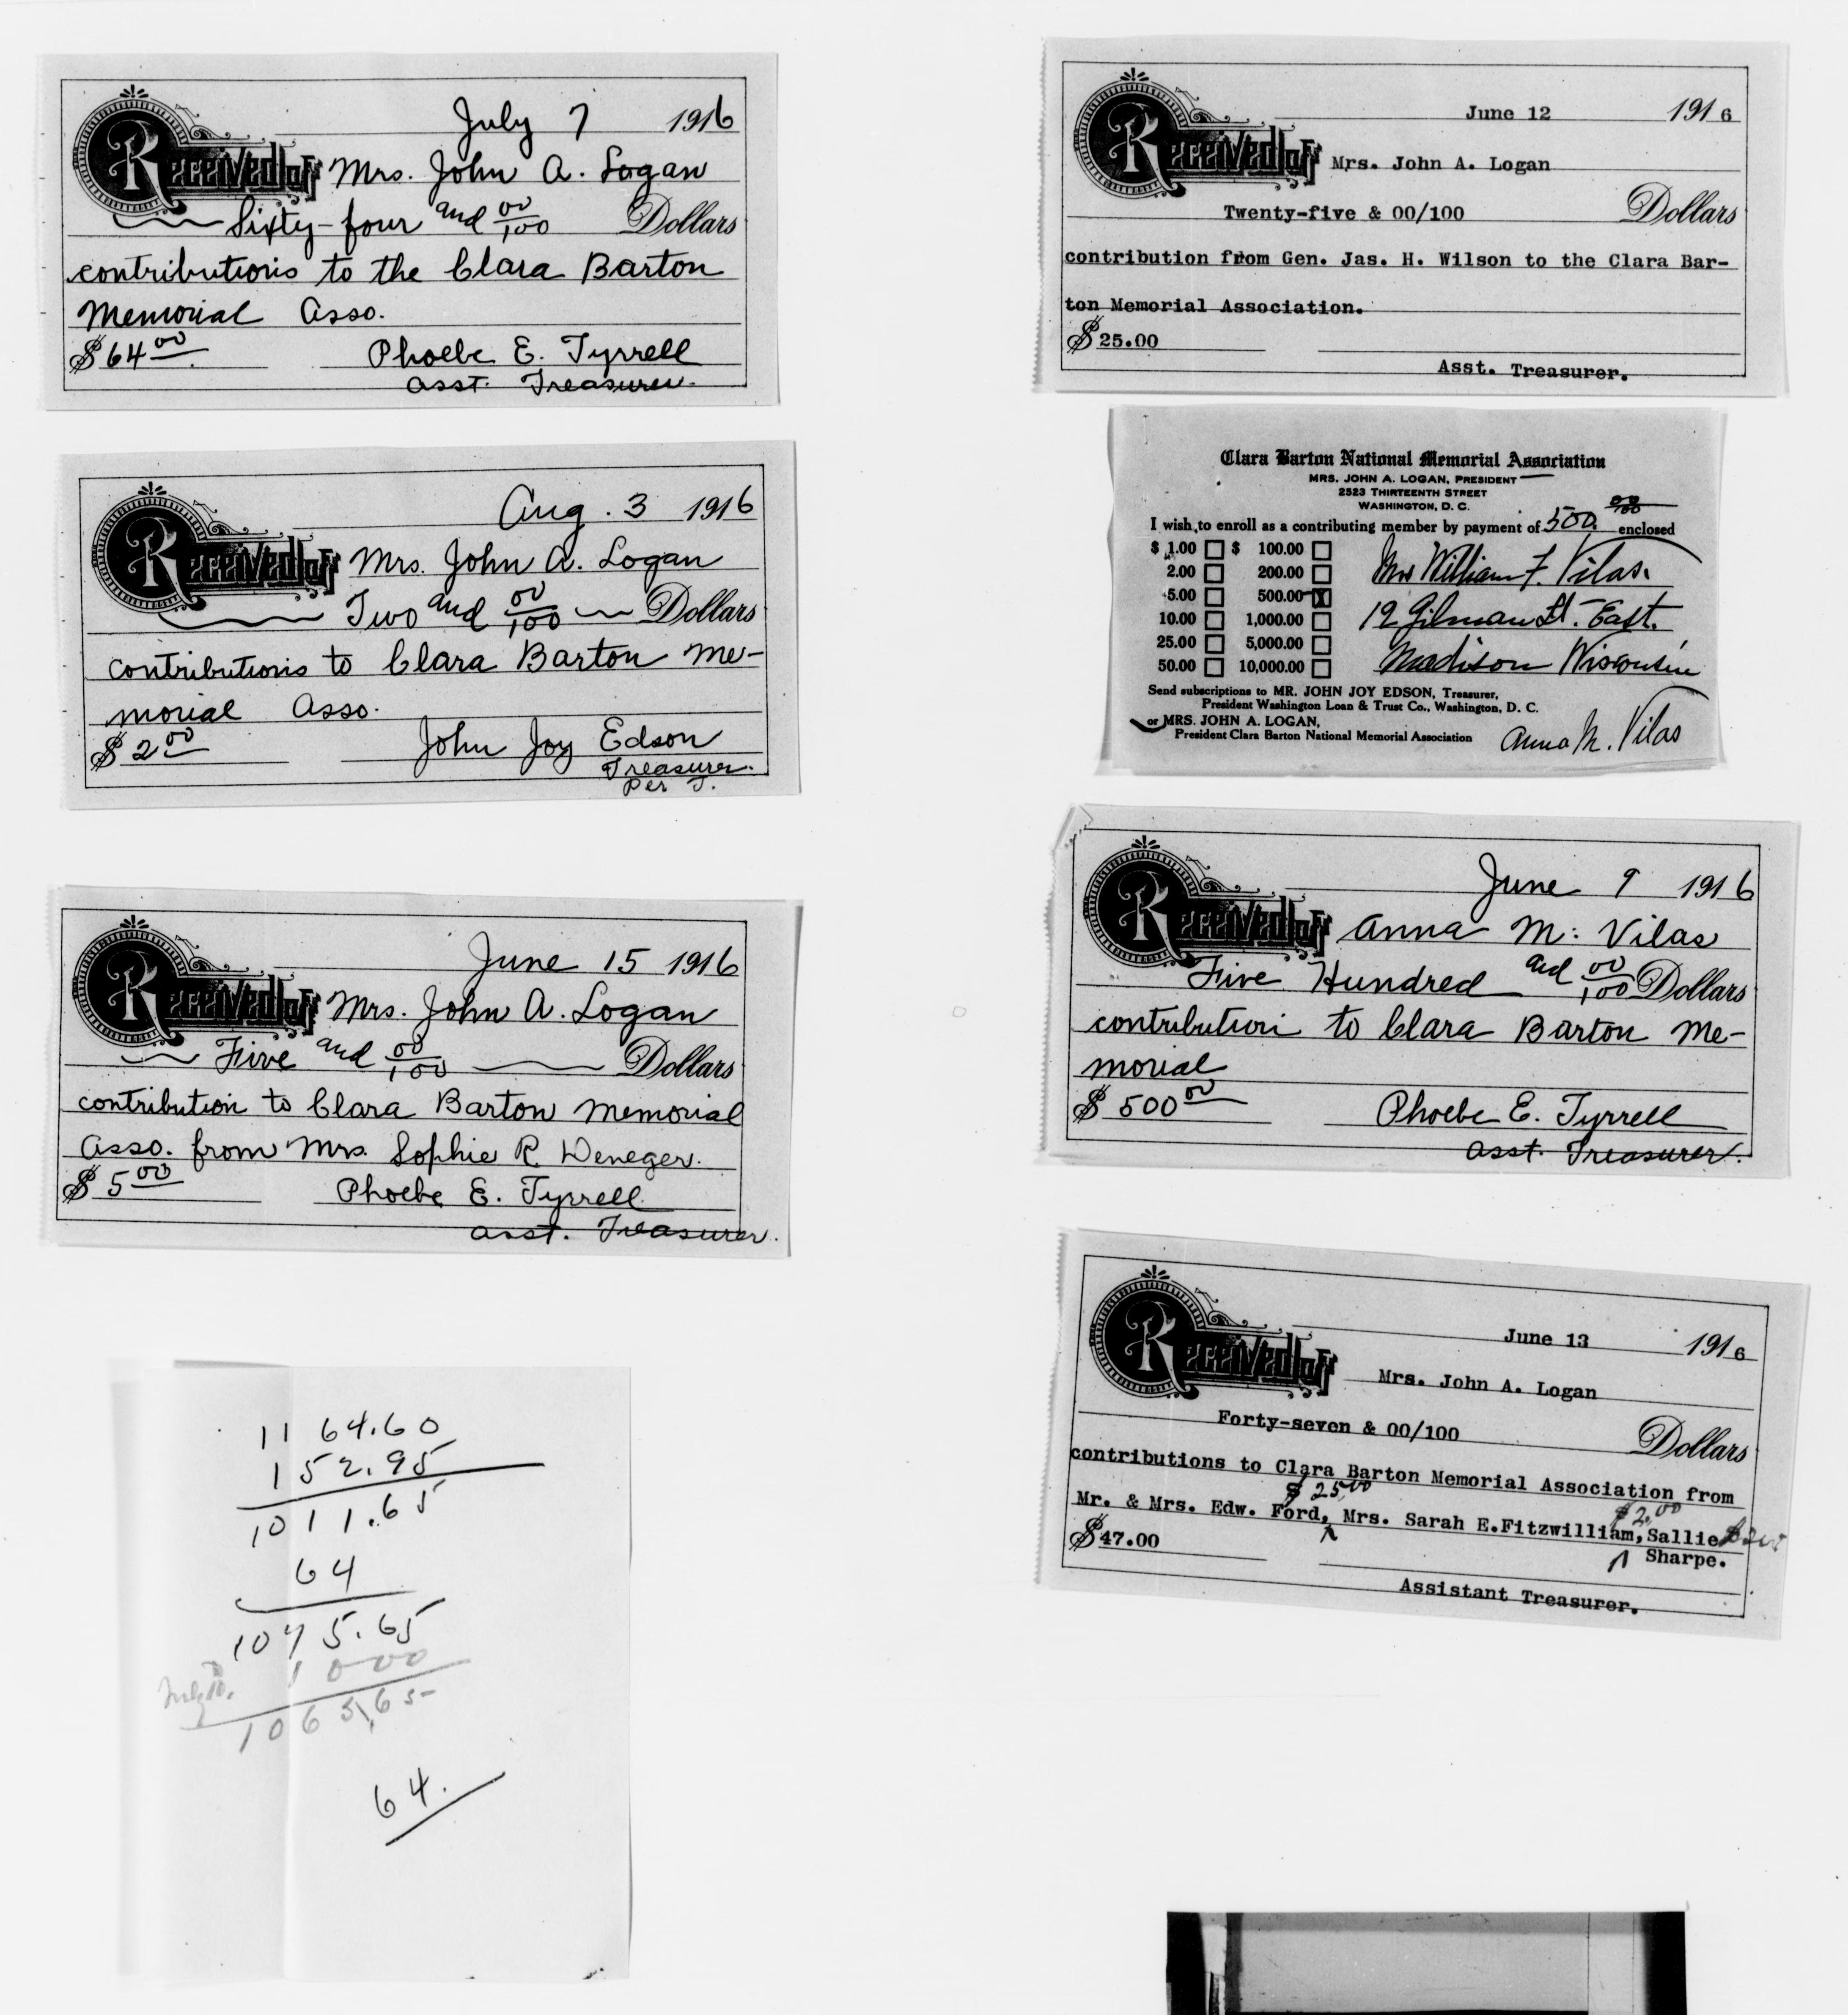 July 7 1916
Received of Mrs. John A. Logan
Sixty-four and 00/100 Dollars
contributions to the Clara Barton
Memorial Asso.
$ 64 00
Phoebe E. Tyrrell
Asst. Treasurer.
Aug. 3 1916
Received of Mrs. John A. Logan
Two and 00/100 Dollars
contributions to Clara Barton Me-
morial Asso.
$ 2 00
John Joy Edson
Treasurer.
Per T.
June 15 1916
Received of Mrs. John A. Logan
Five and 00/100 Dollars
contribution to Clara Barton Memorial
Asso. from Mrs. Sophie R. Weneger.
$ 5 00
Phoebe E. Tyrrell
Asst. Treasurer.
1164.60
152.95
1011.65
64
1075.65
1000
1065.65
64.
June 12 1916
Received of Mrs. John A. Logan
Twenty-five & 00/100 Dollars
contribution from Gen. Jas. H. Wilson to the Clara Bar-
ton Memorial Association.
$ 25.00
Asst. Treasurer.
Clara Barton National Memorial Association
MRS. JOHN A. LOGAN, PRESIDENT
2523 THIRTEENTH STREET
WASHINGTON, D. C.
I wish to enroll as a contributing member by payment of 500. 00/100 enclosed
$ 1.00 $ 100.00
2.00 200.00
5.00 500.00 X
10.00 1,000.00
25.00 5,000.00
50.00 10,000.00
Mrs William F. Vilas.
12 Gilman St. East.
Madison Wisconsin
Send subscriptions to MR. JOHN JOY EDSON, Treasurer,
President Washington Loan & Trust Co., Washington, D. C.
or MRS. JOHN A. LOGAN,
President Clara Barton National Memorial Association
Anna M. Vilas
June 9 1916
Received of Anna M. Vilas
Five Hundred and 00/100 Dollars
contribution to Clara Barton Me-
morial
$ 500 00
Phoebe E. Tyrrell
Asst. Treasurer.
June 13 1916
Received of Mrs. John A. Logan
Forty-seven & 00/100 Dollars
contributions to Clara Barton Memorial Association from
$25.00
Mr. & Mrs. Edw. Ford, Mrs. Sarah E.Fitzwilliam, $2.00 Sallie
Sharpe.
$ 47.00
Assistant Treasurer.